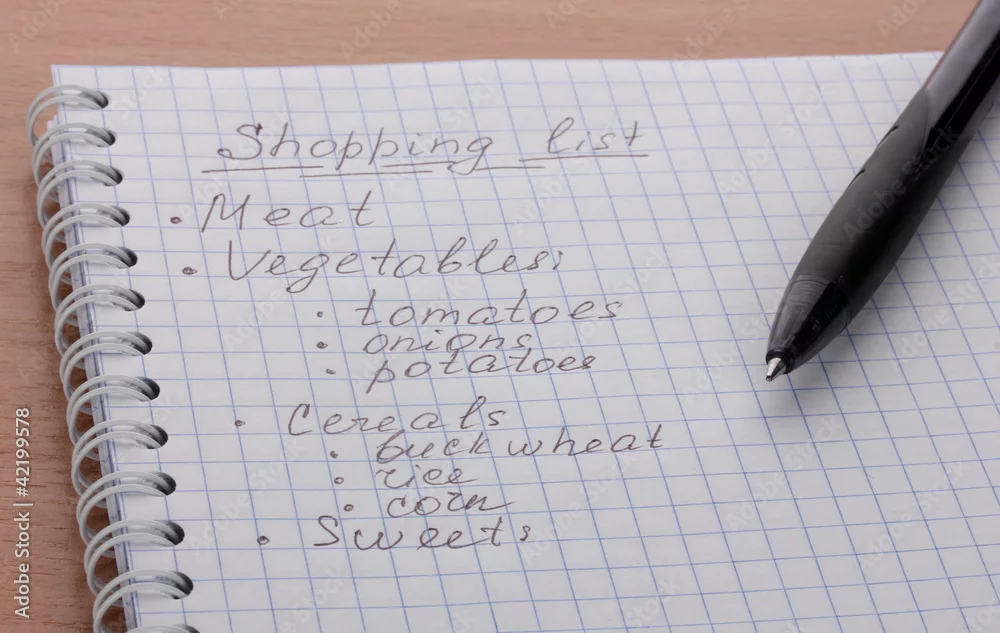 Shopping list
• Meat
• Vegetables:
• tomatoes
• onions
• potatoes
• Cereals
• buckwheat
• rice
• corn
• Sweets
Adobe Stock | #42199578